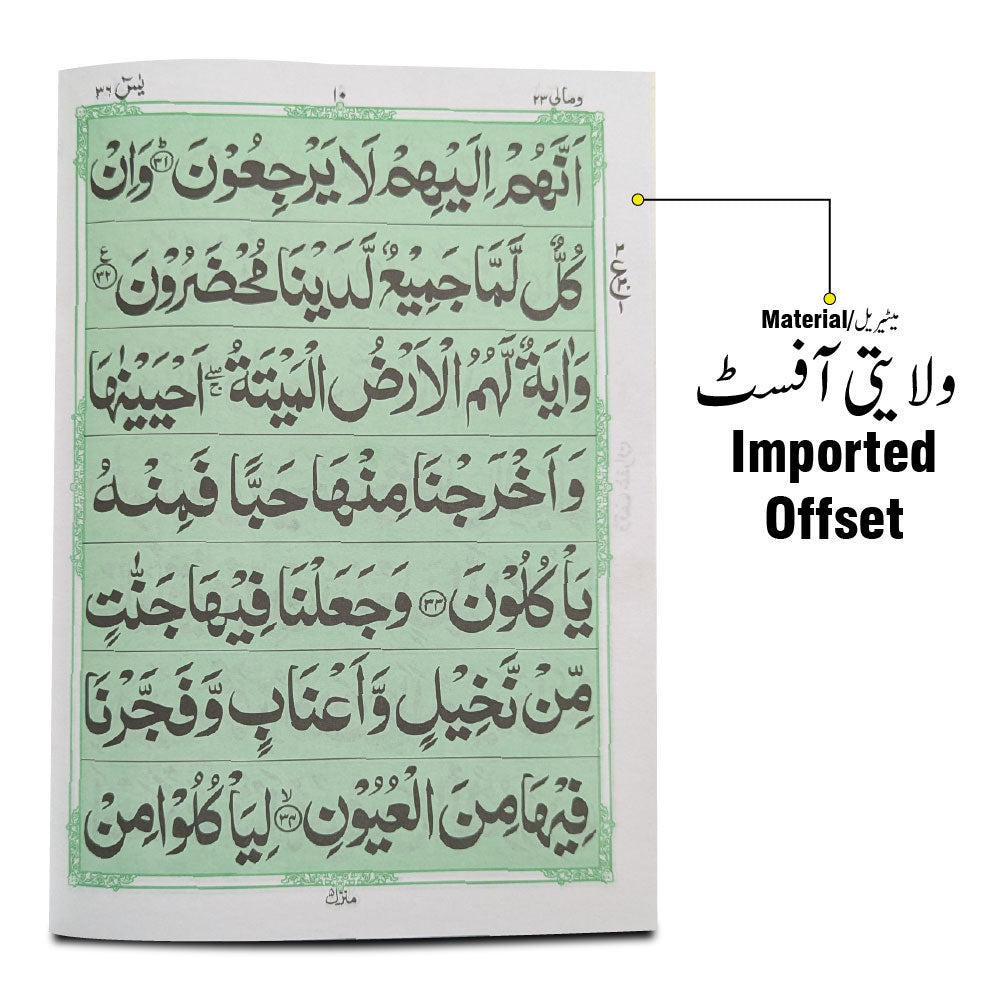 یٰسٓ ۳۶
۱۰
ومالی ۲۳
اَنَّهُمْ اِلَیْهِمْ لَا یَرْجِعُوْنَ ؕ﴿۳۱﴾ وَاِنْ
كُلٌّ لَّمَّا جَمِیْعٌ لَّدَیْنَا مُحْضَرُوْنَ ﴿۳۲﴾ ع
وَاٰیَةٌ لَّهُمُ الْاَرْضُ الْمَیْتَةُ ۖۚ اَحْیَیْنٰهَا
وَاَخْرَجْنَا مِنْهَا حَبًّا فَمِنْهُ
یَاْكُلُوْنَ ﴿۳۳﴾ وَجَعَلْنَا فِیْهَا جَنّٰتٍ
مِّنْ نَّخِیْلٍ وَّاَعْنَابٍ وَّفَجَّرْنَا
فِیْهَا مِنَ الْعُیُوْنِ ۙ﴿۳۴﴾ لِیَاْكُلُوْا مِنْ
منزل ۵
Material/میٹیریل
ولایتی آفسٹ
Imported
Offset